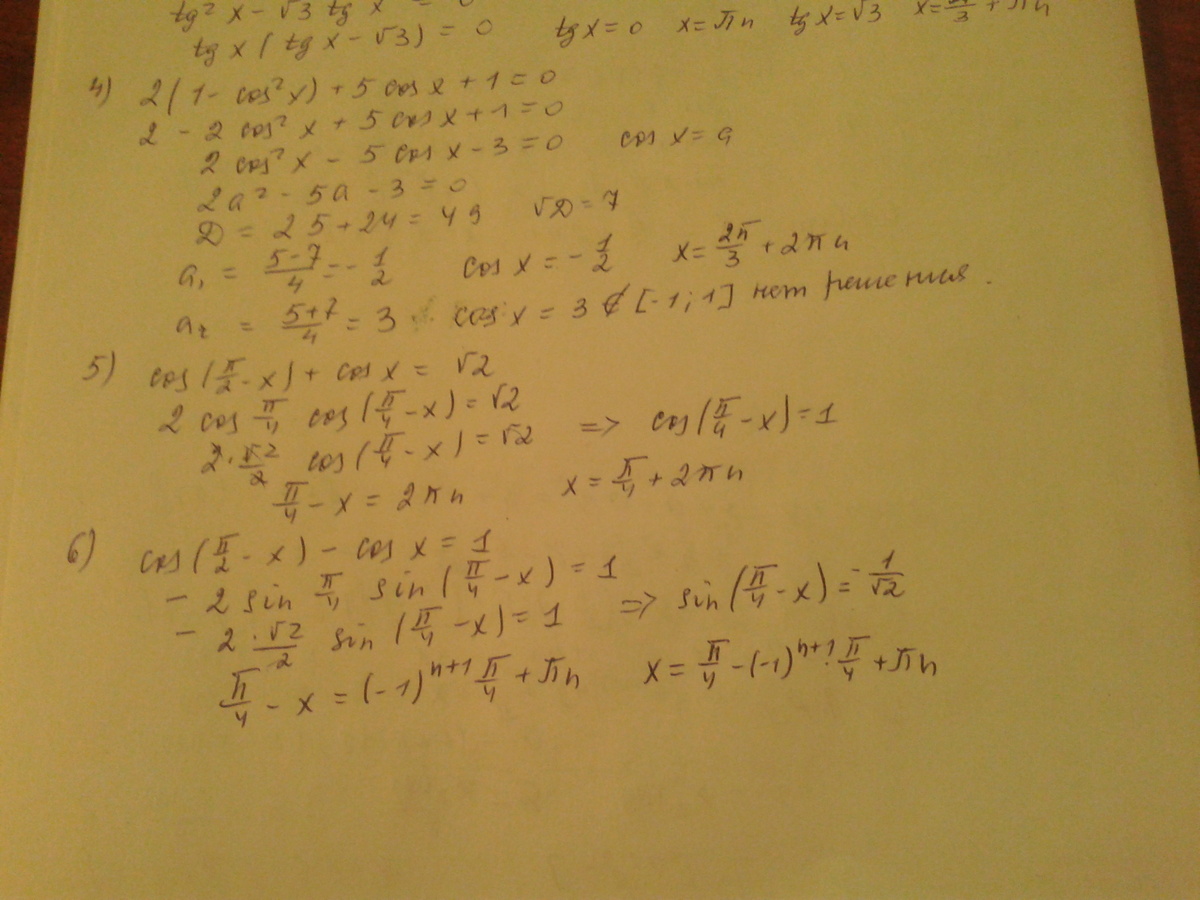 tg² x - √3 tg x = 0
tg x ( tg x - √3 ) = 0 tg x = 0 x = πn tg x = √3 x = π/3 + πn
4) 2(1 - cos² x) + 5 cos x + 1 = 0
2 - 2 cos² x + 5 cos x + 1 = 0
2 cos² x - 5 cos x - 3 = 0 cos x = a
2a² - 5a - 3 = 0
D = 25 + 24 = 49 √D = 7
a₁ = (5-7)/4 = - 1/2 cos x = - 1/2 x = 2π/3 + 2πn
a₂ = (5+7)/4 = 3 cos x = 3 ∉ [-1; 1] нет решения.
5) cos(π/2 - x) + cos x = √2
2 cos π/4 cos(π/4 - x) = √2
2 · √2/2 cos(π/4 - x) = √2 => cos(π/4 - x) = 1
π/4 - x = 2πn x = π/4 + 2πn
6) cos(π/2 - x) - cos x = 1
- 2 sin π/4 sin(π/4 - x) = 1
- 2 · √2/2 sin(π/4 - x) = 1 => sin(π/4 - x) = - 1/√2
π/4 - x = (-1)ⁿ⁺¹ π/4 + πn x = π/4 - (-1)ⁿ⁺¹ · π/4 + πn